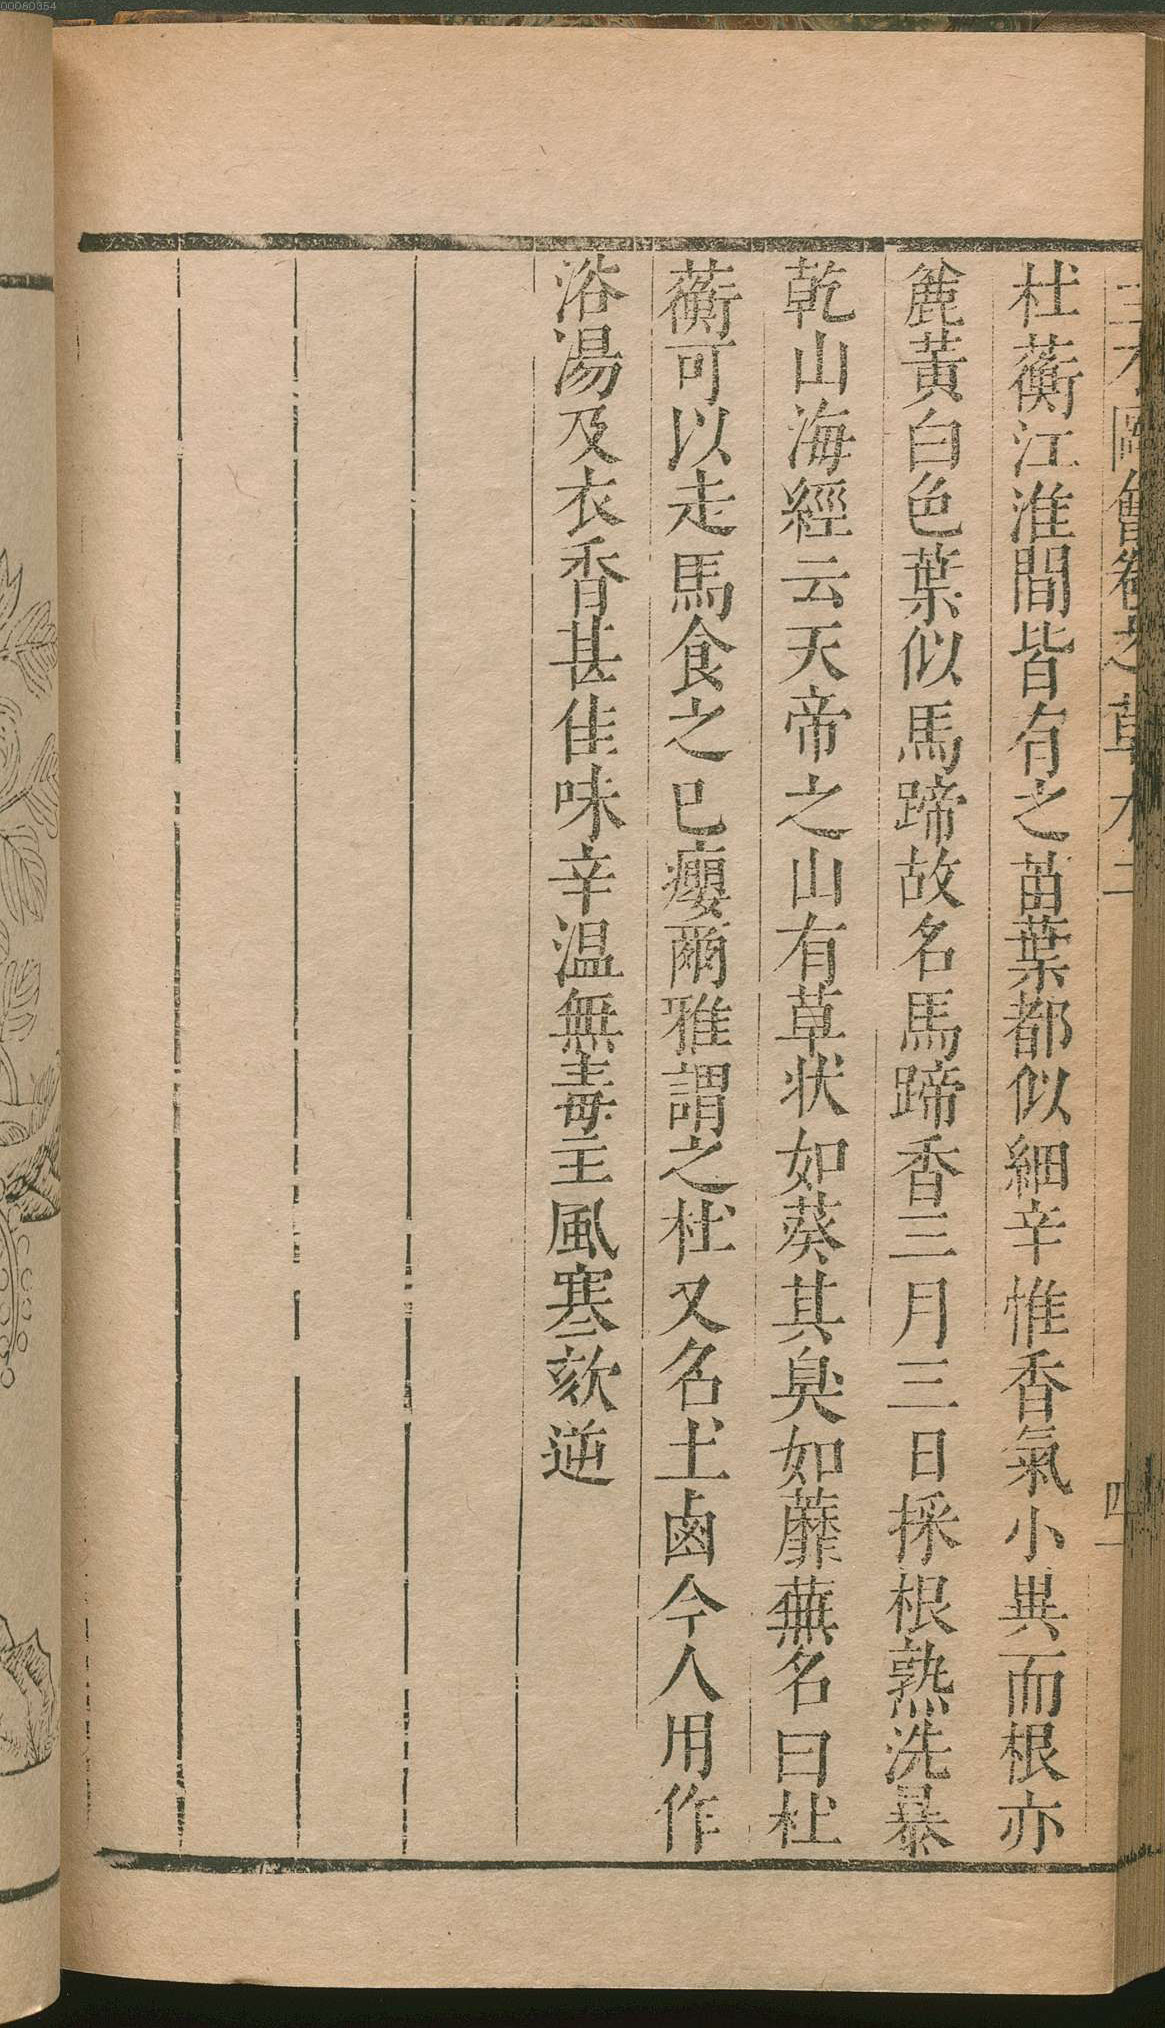 杜蘅江淮間皆有之苗葉都似細辛惟香氣小異而根亦
麄黃白色葉似馬蹄故名馬蹄香三月三日採根熟洗暴
乾山海經云天帝之山有草狀如葵其臭如蘼蕪名曰杜
蘅可以走馬食之已癭爾雅謂之杜又名土鹵今人用作
浴湯及衣香甚佳味辛温無毒主風寒欬逆
00060354